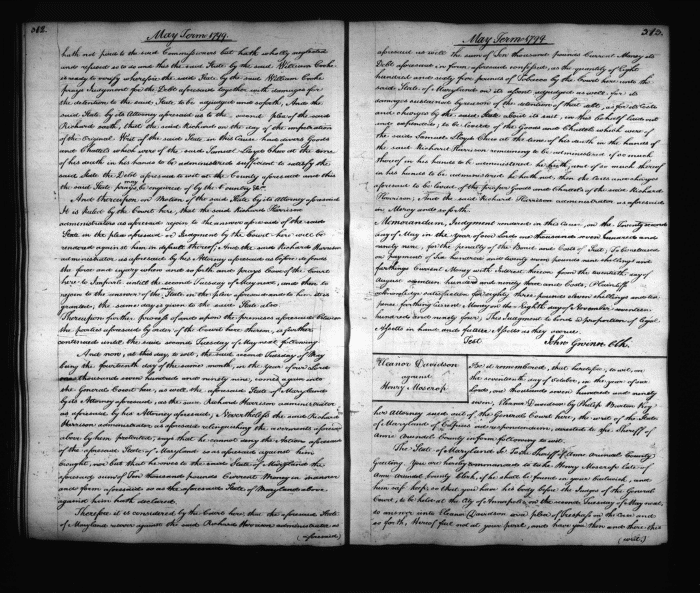 312.
May Term 1799.
hath not paid to the said Commissioners but hath wholly neglected
and refused so to do and this the said State by the said William Cooke
is ready to verify wherefore the said State by the said William Cooke
prays Judgment for the Debt aforesaid together with damages for
the detention to the said State to be adjudged and soforth, And the
said State by its Attorney aforesaid as to the second plea of the said
Richard saith, that the said Richard on the day of the impetration
of the Original Writ of the said State in this Cause had divers Goods
and Chattels which were of the said Samuel Lloyd Chew at the time
of his death in his hands to be administered sufficient to satisfy the
said State the Debt aforesaid to wit at the County aforesaid and this
the said State prays be enquired of by the Country &c.
And thereupon on Motion of the said State by its Attorney aforesaid
It is Ruled by the Court here, that the said Richard Harrison
administrator as aforesaid rejoin to the answer aforesaid of the said
State in the plea aforesaid or Judgment by the Court here will be
rendered against him in default thereof, And the said Richard Harrison
administrator as aforesaid by his Attorney aforesaid as before defends
the force and injury when and soforth and prays leave of the Court
here to Imparle untill the second Tuesday of May next, and then to
rejoin to the answer of the said State in the plea aforesaid and to him it is
granted, the same day is given to the said State also
Thereupon further process of and upon the premises aforesaid between
the parties aforesaid by order of the Court here thereon, is further
continued until the second Tuesday of May next following
And now, at this day, to wit, the said second Tuesday of May
being the fourteenth day of the same month, in the year of our Lord
one thousand seven hundred and ninety nine, comes again into
the General Court here, as well the aforesaid State of Maryland
by its Attorney aforesaid, as the said Richard Harrison administrator
as aforesaid by his Attorney aforesaid, Nevertheless the said Richard
Harrison administrator as aforesaid relinquishing the averments aforesaid
above by him pretended, says that he cannot deny the action aforesaid
of the aforesaid State of Maryland so as aforesaid against him
brought, nor but that he owes to the said State of Maryland the
aforesaid sum of Ten thousand pounds Current Money in manner
and form aforesaid as the aforesaid State of Maryland above
against him hath declared.
Therefore it is considered by the Court here that the aforesaid State
of Maryland recover against the said Richard Harrison administrator as
(aforesaid)
May Term 1799
313.
aforesaid as well the sum of Ten thousand pounds Current Money its
Debt aforesaid in form aforesaid confessed, as the quantity of Eight
hundred and sixty five pounds of Tobacco by the Court here unto the
said State of Maryland on its assent adjudged as well for its
damages sustained by reason of the detention of that debt, as for its Costs
and charges by the said State about its suit in this behalf laid out
and expended, to be levied of the Goods and Chattels which were of
the said Samuel Lloyd Chew at the time of his death in the hands of
the said Richard Harrison remaining to be administered if so much
thereof in his hands to be administered he hath, and if so much thereof
in his hands to be administered he hath not, then the Costs and charges
aforesaid to be levied of the proper Goods and Chattels of the said Richard
Harrison; And the said Richard Harrison administrator as aforesaid
in Mercy and soforth.
Memorandum, Judgment rendered in this Cause, on the Twenty second
day of May in the Year of our Lord one thousand seven hundred and
ninety nine, for the penalty of the Bond and Costs of Suit, To be released
on payment of Six hundred and twenty seven pounds nine shillings and
farthings Current Money with Interest thereon from the twentieth day of
August eighteen hundred and ninety three and Costs, Plaintiffs
acknowledge satisfaction for eighty three pounds eleven shillings and ten
pence farthing current Money on the Eighth day of November seventeen
hundred and ninety four, This Judgment to bind a proportion of legal
Assetts in hand, and future Assetts as they accrue.
Test John Gwinn Clk.
Eleanor Davidson
against
Henry Mescrop
Be it remembered, that heretofore, to wit, on
the seventeenth day of October, in the year of our
Lord, one thousand seven hundred and ninety
seven, Eleanor Davidson by Philip Barton Key
her Attorney sued out of the General Court here, the writ of the State
of Maryland of Capias ad respondendum, directed to the Sheriff of
Ann Arundel County inform following to wit.
The State of Maryland To the Sheriff of Ann Arundel County
Greeting. You are hereby commanded to take Henry Mescrop late of
Ann Arundel County Clerk, if he shall be found in your bailiwick, and
him safe keep, so that you have his body before the Judges of the General
Court, to be held at the City of Annapolis, on the second Tuesday of May next,
to answer unto Eleanor Davidson in a plea of Trespass on the Case and
so forth, Hereof fail not at your peril, and have you then and there this
(writ.)